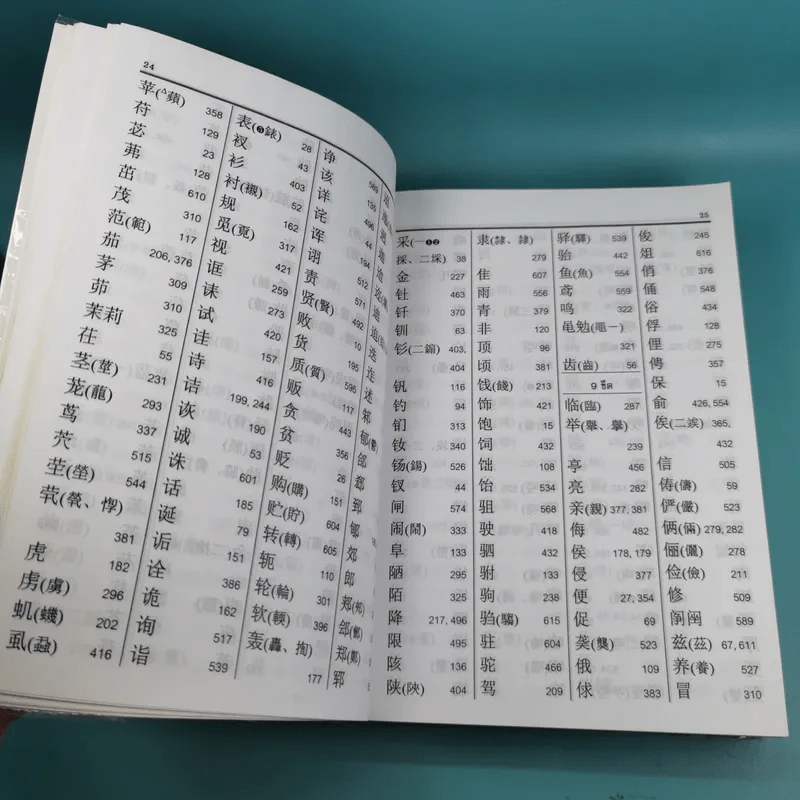 24
苹(△蘋) 358
苻 129
苾 23
茀 128
茁 610
茂 310
范(範) 117
茄 206, 376
茅 309
茆 310
茉莉 325
茌 55
茎(莖) 231
茏(龍) 293
茑 337
茓 515
茔(塋) 544
茕(煢、惸)
381
虎 182
虏(虜) 296
虮(蟣) 202
虱(蝨) 416
表(❺錶) 28
衩 43
衫 403
衬(襯) 52
规 162
觅(覓) 317
视 421
诓 259
诔 273
试 420
诖 157
诗 416
诘 199, 244
诙 190
诚 53
诛 601
话 185
诞 79
诟 151
诠 386
诡 162
询 517
诣 539
诤 589
该 135
详 496
诧 44
诨 194
诩 512
责 571
贤(賢) 492
败 10
货 195
质(質) 595
贩 116
贪 443
贫 356
贬 26
购(購) 151
贮(貯) 601
转(轉) 604, 605
轭 110
轮(輪) 301
软(輭) 396
轰(轟、掏)
177
迭
述
郁
郄
郅
郇
郊
郎
郏(郟)
郐(鄶)
郑(鄭)
郓
35
采(一❶❷
採、二埰) 38
金 227
钍 463
钎 370
钏 63
钐(二鎺) 403,
404
钒 116
钓 94
钔 313
钕 340
钖(錫) 526
钗 44
闸 574
闹(鬧) 333
阜 133
陋 295
陌 325
降 217, 496
限 495
陔 136
陕(陝) 404
隶(隸、隷)
279
隹 607
雨 556
青 379
非 120
顶 96
顷 381
饯(餞) 213
饰 421
饱 15
饲 432
饳 108
饴 534
驵 568
驶 418
驷 432
驸 133
驹 238
驺(騶) 615
驻 604
驼 466
驾 209
驿(驛) 539
骀 442
鱼(魚) 554
鸢 559
鸣 322
黾勉(黽一)
321
齿(齒) 56
9 ขีด
临(臨) 287
举(舉、擧)
239
亭 456
亮 282
亲(親) 377, 381
侮 482
侯 178, 179
侵 377
便 27, 354
促 69
䶮(龑) 523
俄 109
俅 383
俊 245
俎 616
俏 376
俑 548
俗 434
俘 128
俚 275
俜 357
保 15
俞 426, 554
俟(二竢) 365,
432
信 505
俦(儔) 59
俨(儼) 523
俩(倆) 279, 282
俪(儷) 278
俭(儉) 211
修 509
阋阌 589
兹(茲) 67, 611
养(養) 527
冒 310